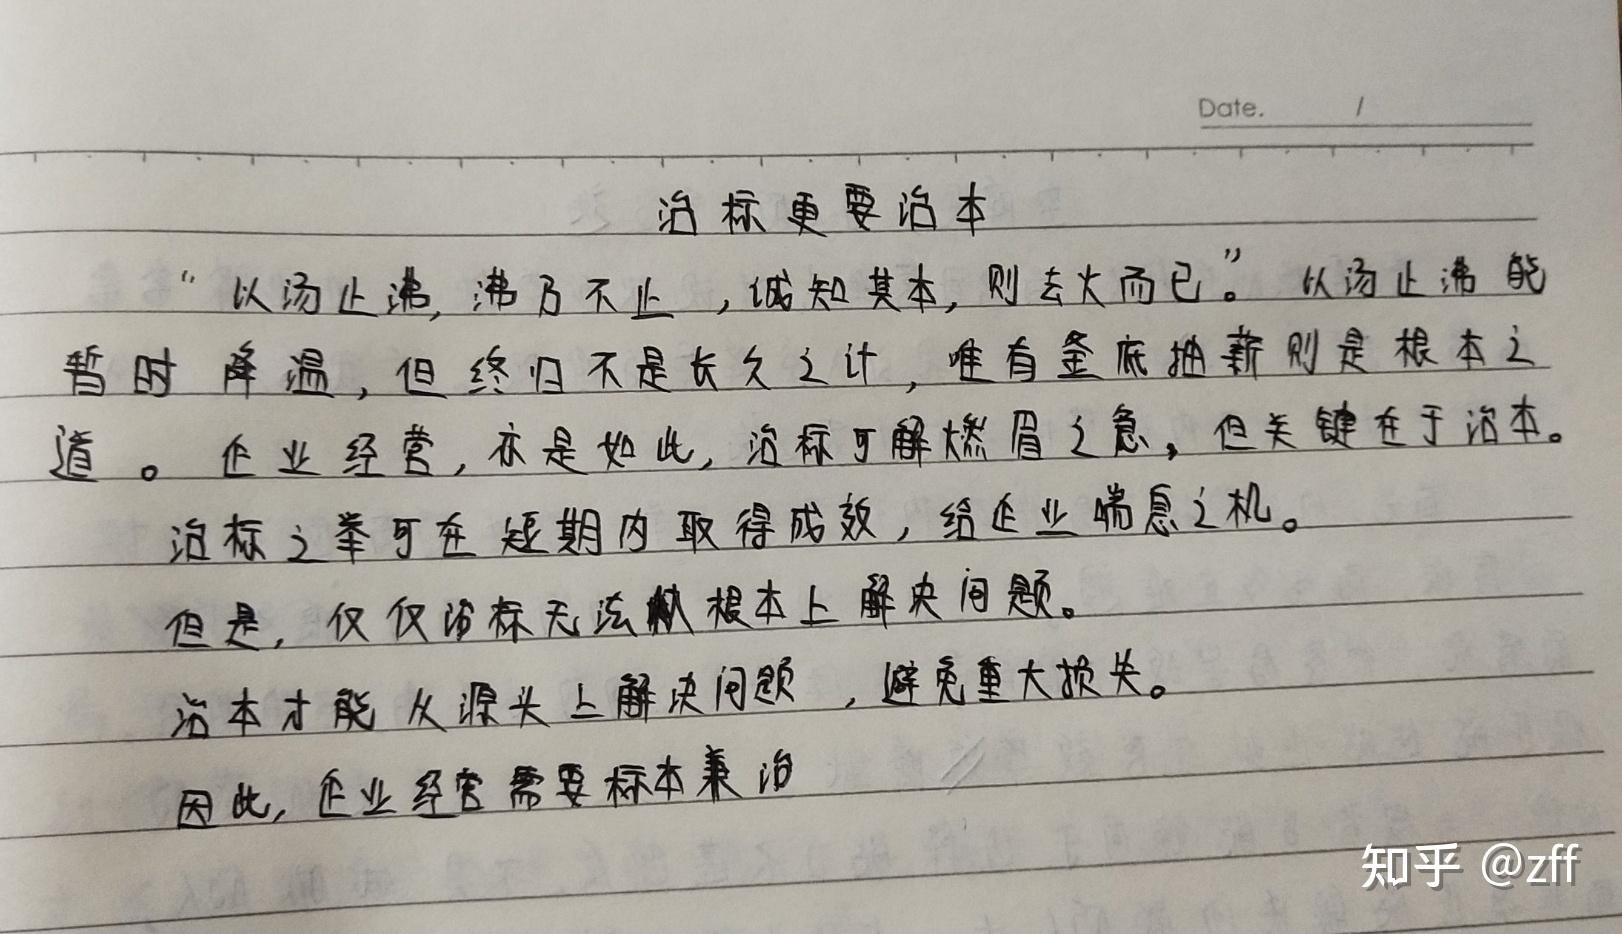 Date. /
治标更要治本
“以汤止沸，沸乃不止，诚知其本，则去火而已”。以汤止沸能
暂时降温，但终归不是长久之计，唯有釜底抽薪则是根本之
道。企业经营，亦是如此，治标可解燃眉之急，但关键在于治本。
治标之举可在短期内取得成效，给企业喘息之机。
但是，仅仅治标无法从根本上解决问题。
治本才能从源头上解决问题，避免重大损失。
因此，企业经营需要标本兼治
知乎 @zff